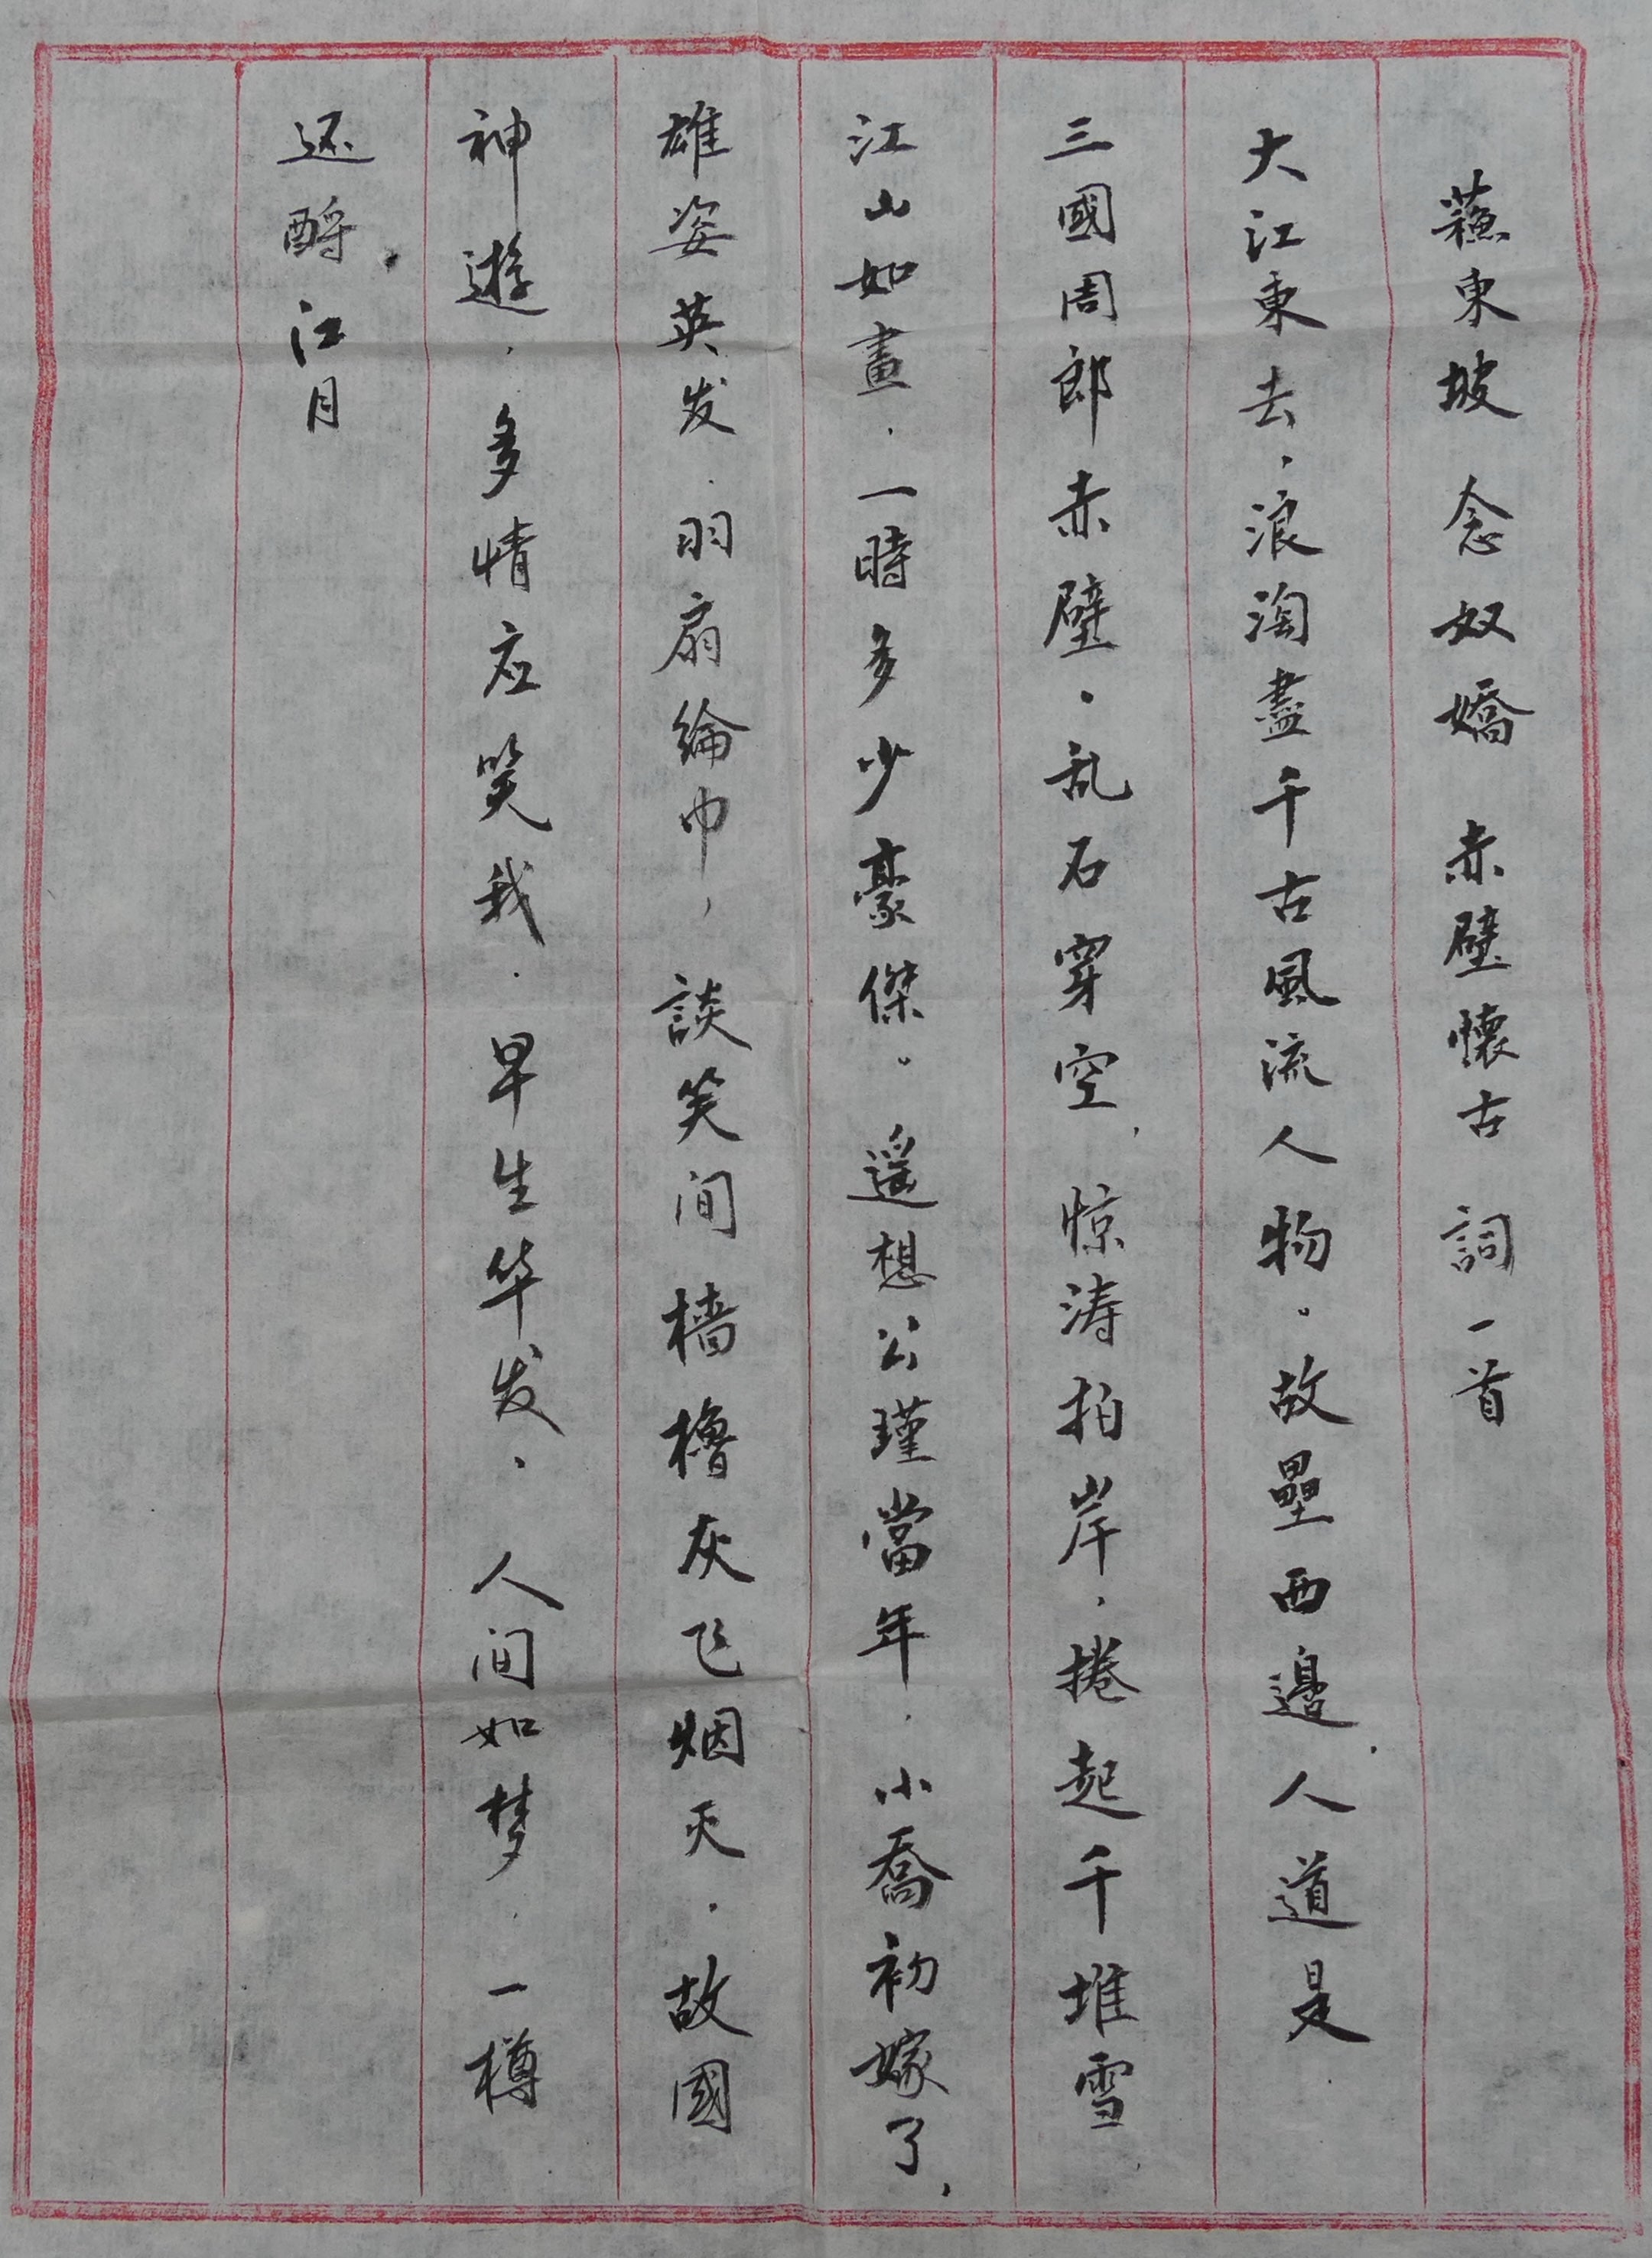 蘓東坡 念奴嬌 赤壁懷古 詞一首
大江東去,浪淘盡千古風流人物。故壘西邊,人道是
三國周郎赤壁。乱石穿空,惊涛拍岸,捲起千堆雪,
江山如畫,一時多少豪傑。遥想公瑾當年,小喬初嫁了,
雄姿英发,羽扇綸巾,談笑间檣櫓灰飞烟灭,故國
神遊,多情应笑我,早生华发,人间如梦,一樽
还酹江月